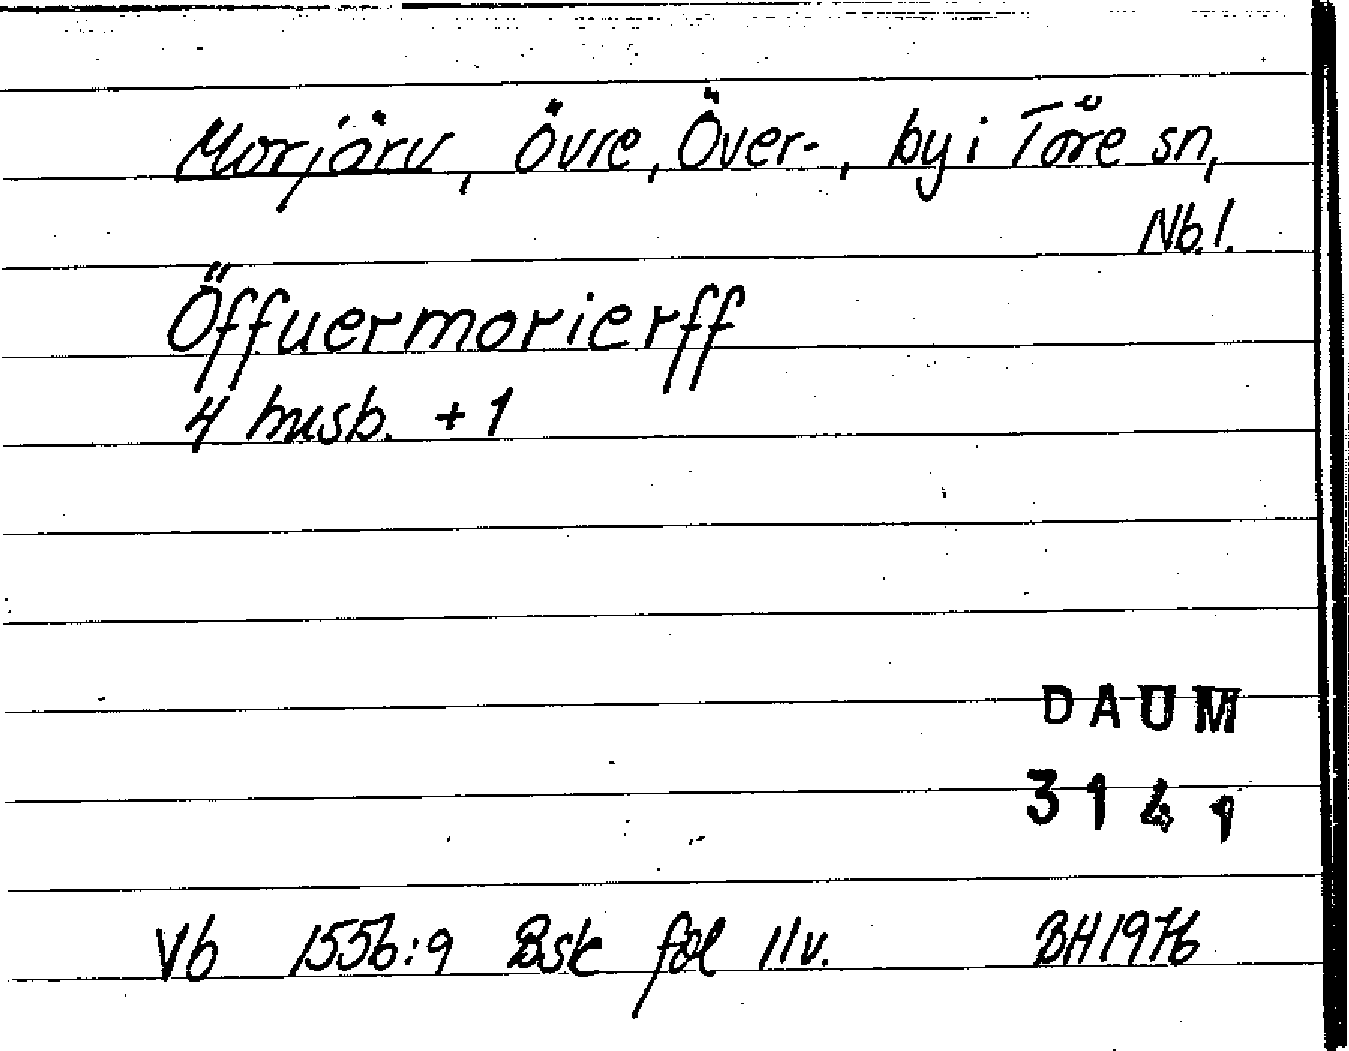 Morjärv, Övre, Över-, by i Töre sn,
Nb.l.
Öffuermorierff
4 husb. + 1
DAUM
3141
Vb 1556:9 Bsk fol 11v. BH1976